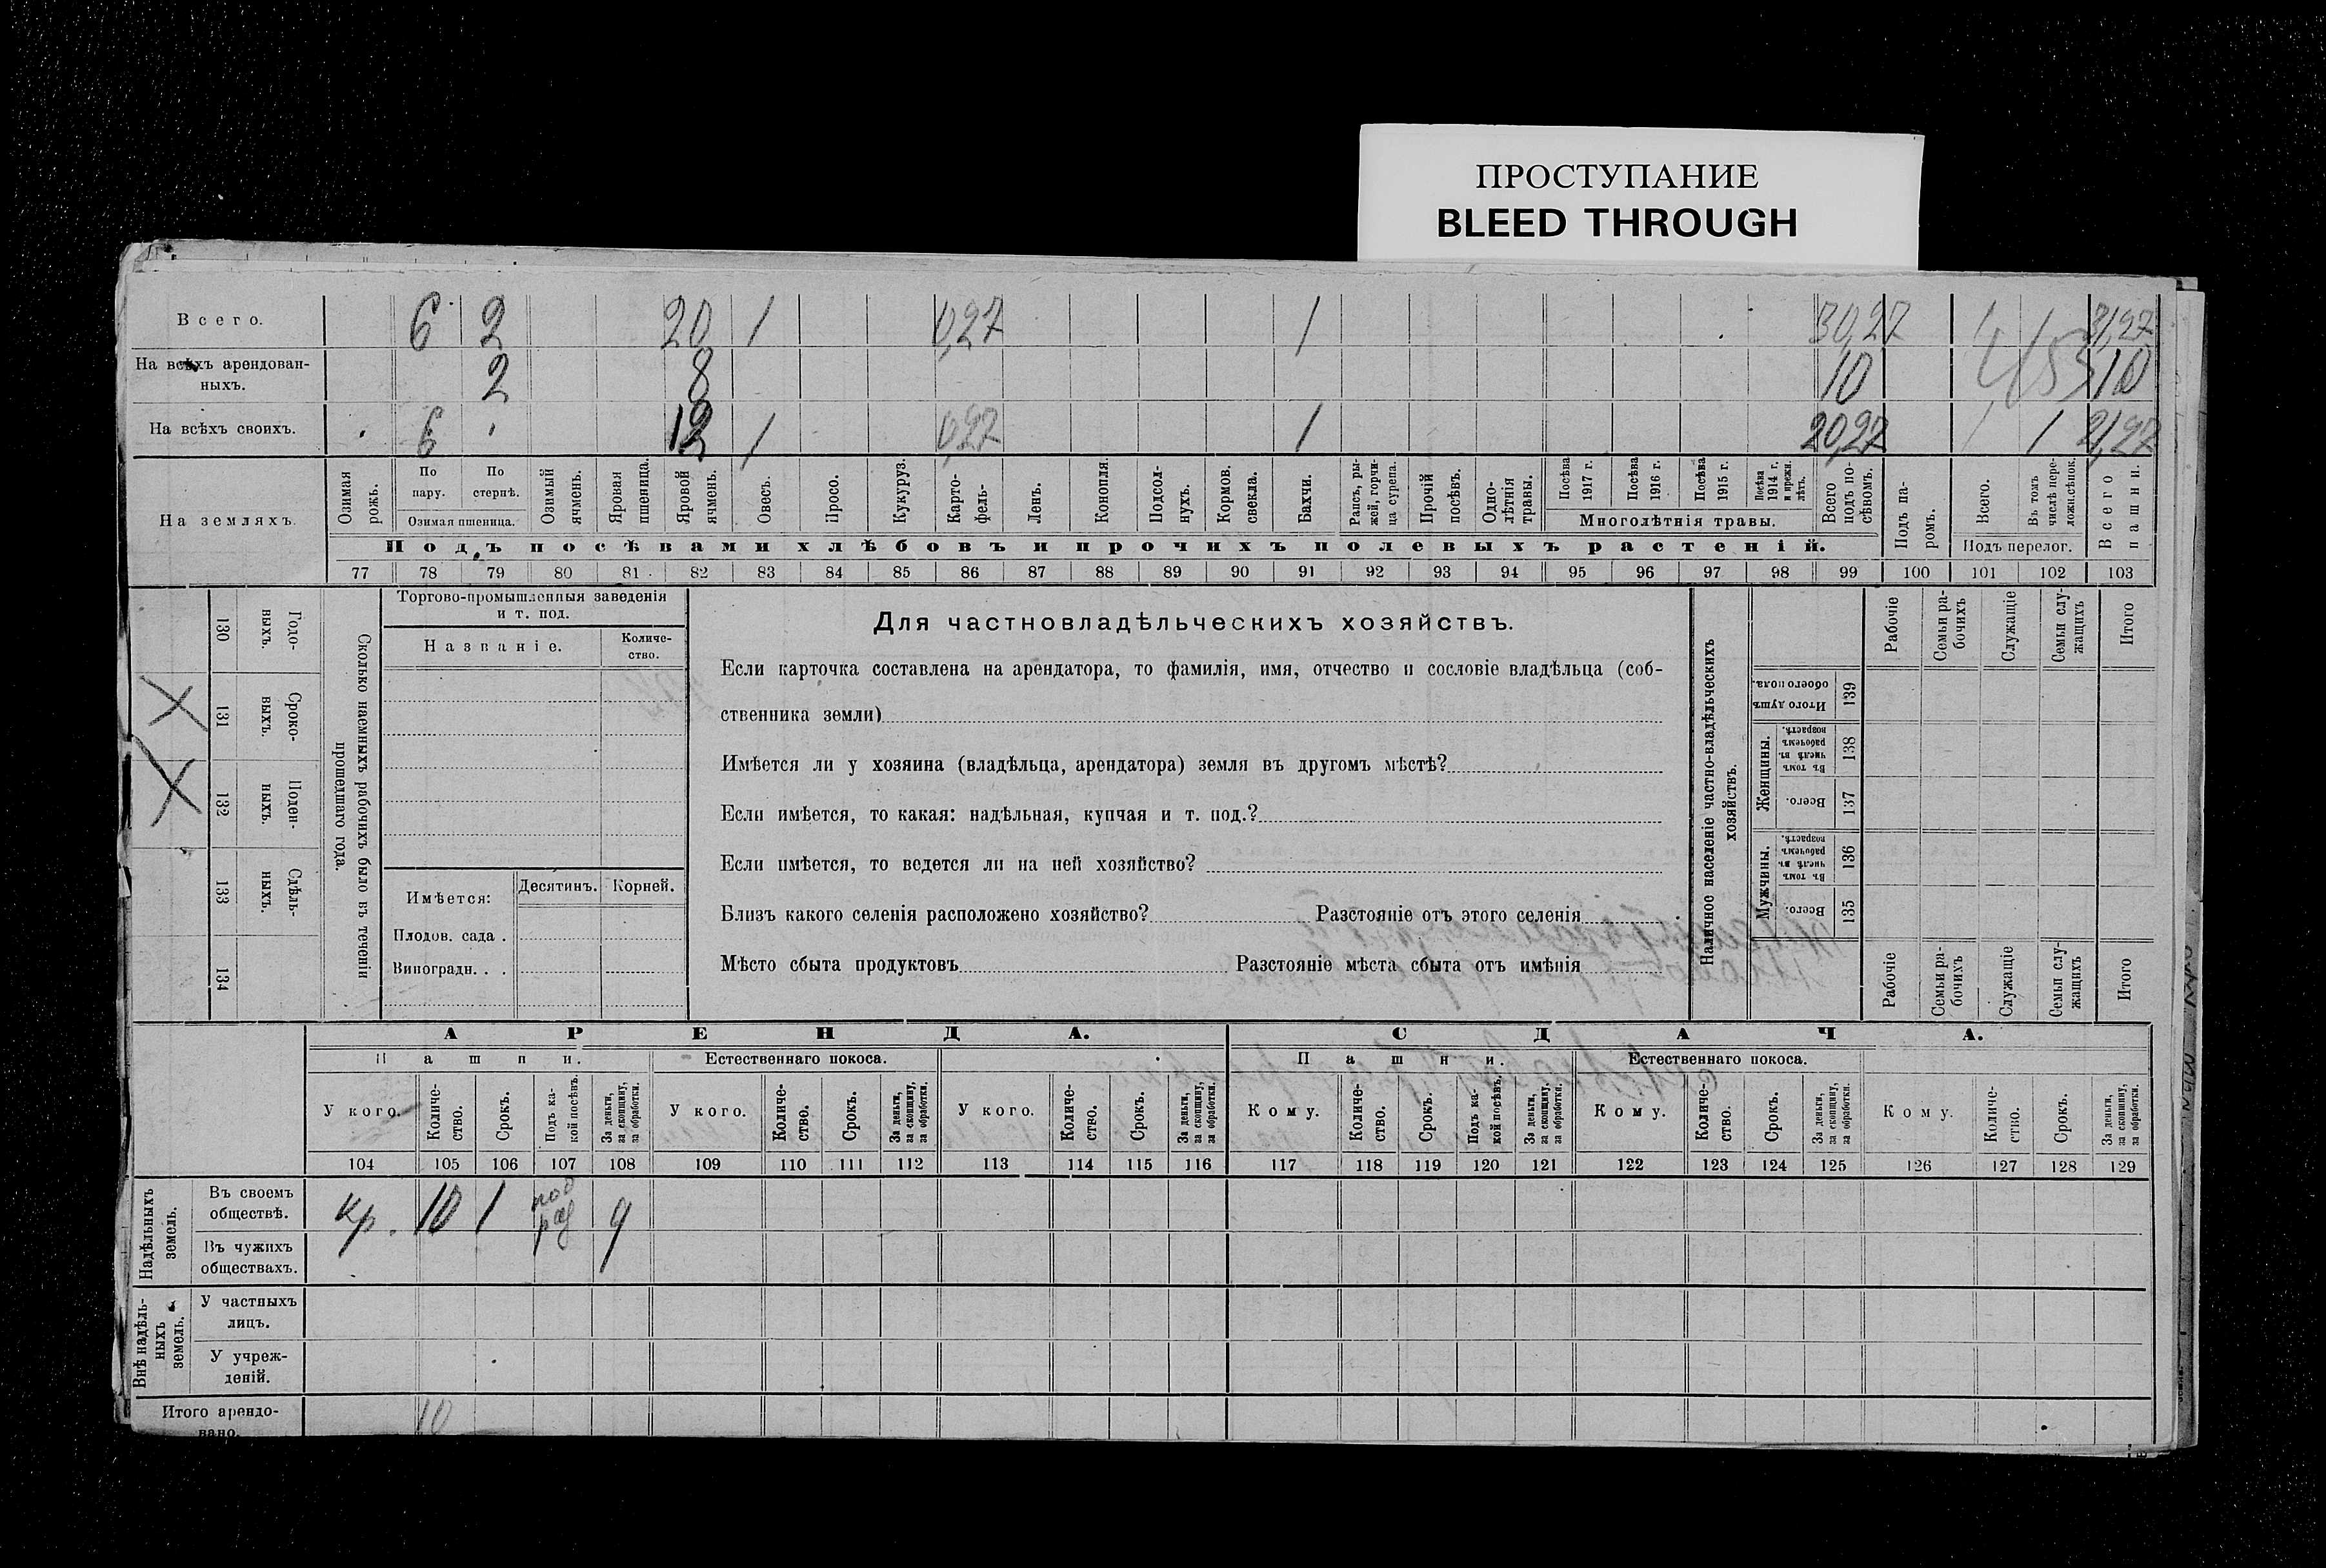 ПРОСТУПАНИЕ
BLEED THROUGH
Всего. 6 2 20 1 0,27 1 30,27 1 31,27
На всѣхъ арендован- 2 8 10 10
ныхъ.
На всѣхъ своихъ. 6 12 1 0,27 1 20,27 1 1 21,27
На земляхъ.
Озимая рожь.
По пару.
По стернѣ.
Озимая пшеница.
Озимый ячмень.
Яровая пшеница.
Яровой ячмень.
Овесъ.
Просо.
Кукуруз.
Карто-
фель-
Ленъ.
Конопля.
Подсол-
нухъ.
Кормов.
свекла.
Бахчи.
Рапсъ, ры-
жей, горчи-
ца сурепа.
Прочій
посѣвъ.
Одно-
лѣтнія
травы.
Посѣва
1917 г.
Посѣва
1916 г.
Посѣва
1915 г.
Посѣва
1914 г.
и прежн.
лѣтъ.
Многолѣтнія травы.
Всего
подъ по-
сѣвомъ.
Подъ па-
ромъ.
Всего.
Въ томъ
числѣ пере-
ложн.сѣнок.
Подъ перелог.
Всего
пашни.
Подъ посѣвами хлѣбовъ и прочихъ полевыхъ растеній.
77 78 79 80 81 82 83 84 85 86 87 88 89 90 91 92 93 94 95 96 97 98 99 100 101 102 103
Годо-
выхъ.
130
Сроко-
выхъ.
131
Поден-
ныхъ.
132
Сдѣль-
ныхъ.
133
134
Сколько наемныхъ рабочихъ было въ теченіи
прошедшаго года.
Торгово-промышленныя заведенія
и т. под.
Названіе.
Количе-
ство.
Имѣется:
Десятинъ. Корней.
Плодов. сада .
Виноградн. . .
Для частновладѣльческихъ хозяйствъ.
Если карточка составлена на арендатора, то фамилія, имя, отчество и сословіе владѣльца (соб-
ственника земли)
Имѣется ли у хозяина (владѣльца, арендатора) земля въ другомъ мѣстѣ?
Если имѣется, то какая: надѣльная, купчая и т. под.?
Если имѣется, то ведется ли на ней хозяйство?
Близъ какого селенія расположено хозяйство? Разстояніе отъ этого селенія
Мѣсто сбыта продуктовъ Разстояніе мѣста сбыта отъ имѣнія
Наличное населеніе частно-владѣльческихъ
хозяйствъ.
Итого душъ
обоего пола.
139
Женщины.
Въ томъ
числѣ въ
рабочемъ
возрастѣ.
138
Всего.
137
Мужчины.
Въ томъ
числѣ въ
рабочемъ
возрастѣ.
136
Всего.
135
Рабочіе
Семьи ра-
бочихъ
Служащіе
Семьи слу-
жащихъ
Итого
Рабочіе
Семьи ра-
бочихъ
Служащіе
Семьи слу-
жащихъ
Итого
АРЕНДА. СДАЧА.
Пашни. Естественнаго покоса. Пашни. Естественнаго покоса.
У кого.
Количе-
ство.
Срокъ.
Подъ ка-
кой посѣвъ.
За деньги,
за скопщину,
за обработки.
У кого.
Количе-
ство.
Срокъ.
За деньги,
за скопщину,
за обработки.
У кого.
Количе-
ство.
Срокъ.
За деньги,
за скопщину,
за обработки.
Кому.
Количе-
ство.
Срокъ.
Подъ ка-
кой посѣвъ.
За деньги,
за скопщину,
за обработки.
Кому.
Количе-
ство.
Срокъ.
За деньги,
за скопщину,
за обработки.
Кому.
Количе-
ство.
Срокъ.
За деньги,
за скопщину,
за обработки.
104 105 106 107 108 109 110 111 112 113 114 115 116 117 118 119 120 121 122 123 124 125 126 127 128 129
Надѣльныхъ
земель.
Въ своемъ
обществѣ.
кр. 10 1
Въ чужихъ
обществахъ.
Внѣ надѣль-
ныхъ
земель.
У частныхъ
лицъ.
У учреж-
деній.
Итого арендо-
вано. 10